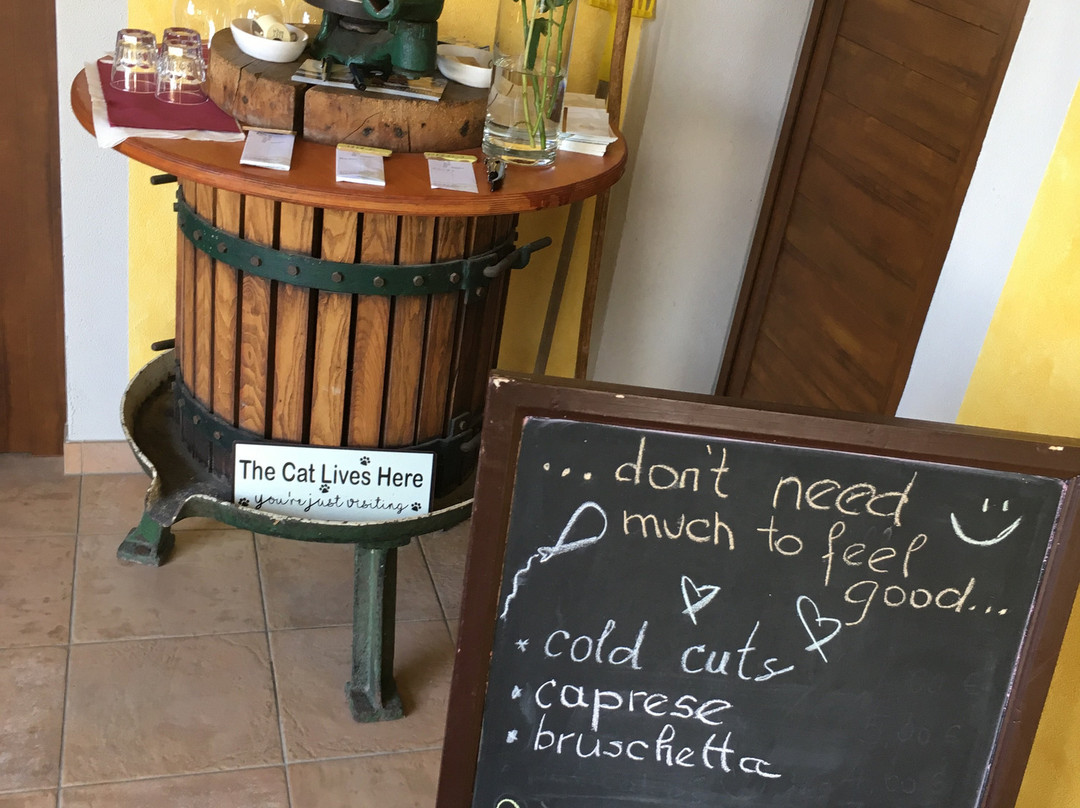 The Cat Lives Here
you're just visiting
... don't need
much to feel
good...
* cold cuts
* caprese
* bruschetta